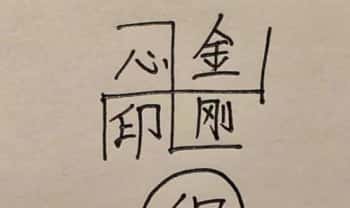 心金
印刚